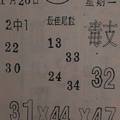 月26日 星期一
2中1 最佳尾数
22 13
33
毒支
30 24
34
32
31×44×47